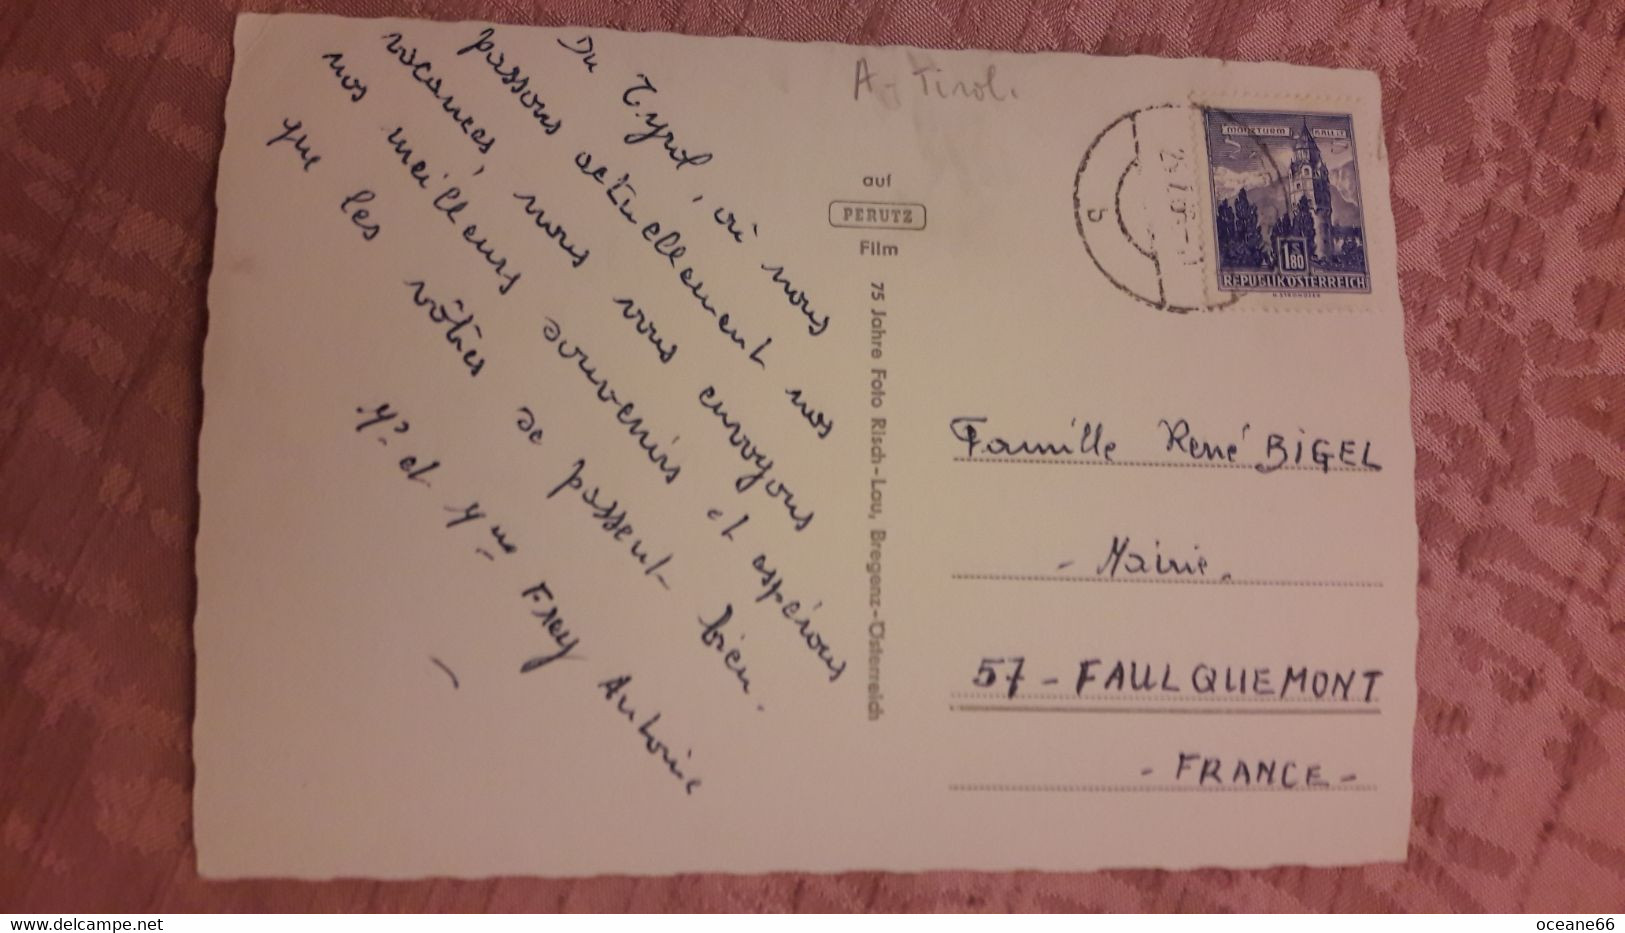 Du Tyrol, où nous
passons actuellement nos
vacances, nous vous envoyons
nos meilleurs souvenirs et espérons
que les vôtres se passent bien.
Mr et Mme Frey Antoine
A. Tirol.
auf
PERUTZ
Film
75 Jahre Foto Risch-Lau, Bregenz-Österreich
b
MÜNZTURM HALL
1.80
S
REPUBLIK ÖSTERREICH
Famille René BIGEL
- Mairie -
57 - FAULQUEMONT
- FRANCE -
oceane66